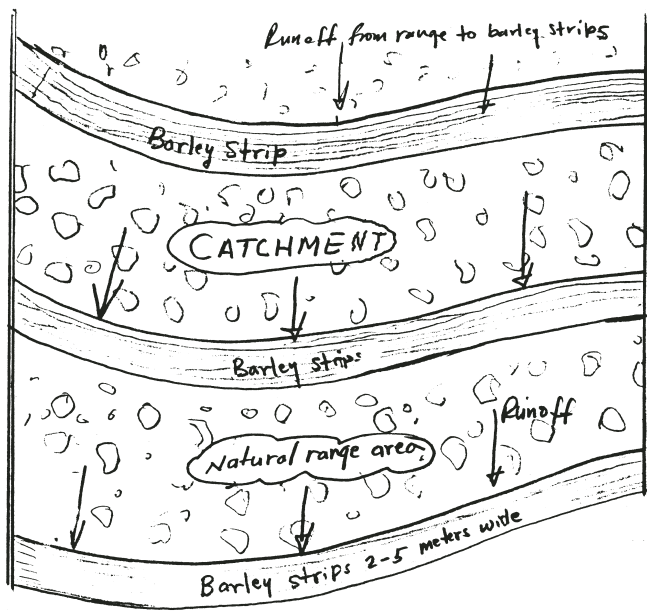 Runoff from range to barley strips
Barley Strip
CATCHMENT
Barley strips
Runoff
Natural range area
Barley strips 2-5 meters wide